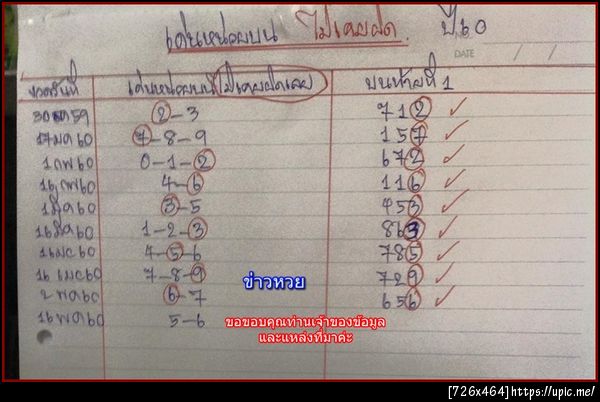 เด่นหน่วยบน ไม่เคยผิด. ปี60
DATE / /
งวดวันที่ เด่นหน่วยบน ไม่เคยผิดเลย บนท้ายที่ 1
30 ธค 59 2-3 712 ✓
17 มค 60 7-8-9 157 ✓
1 กพ 60 0-1-2 672 ✓
16 กพ 60 4-6 116 ✓
1 มีค 60 3-5 453 ✓
16 มีค 60 1-2-3 863 ✓
1 เมย 60 4-5-6 785 ✓
16 เมย 60 7-8-9 729 ✓
2 พค 60 6-7 656 ✓
16 พค 60 5-6
ข่าวหวย
ขอขอบคุณท่านเจ้าของข้อมูล
และแหล่งที่มาค่ะ
[726x464]https://upic.me/